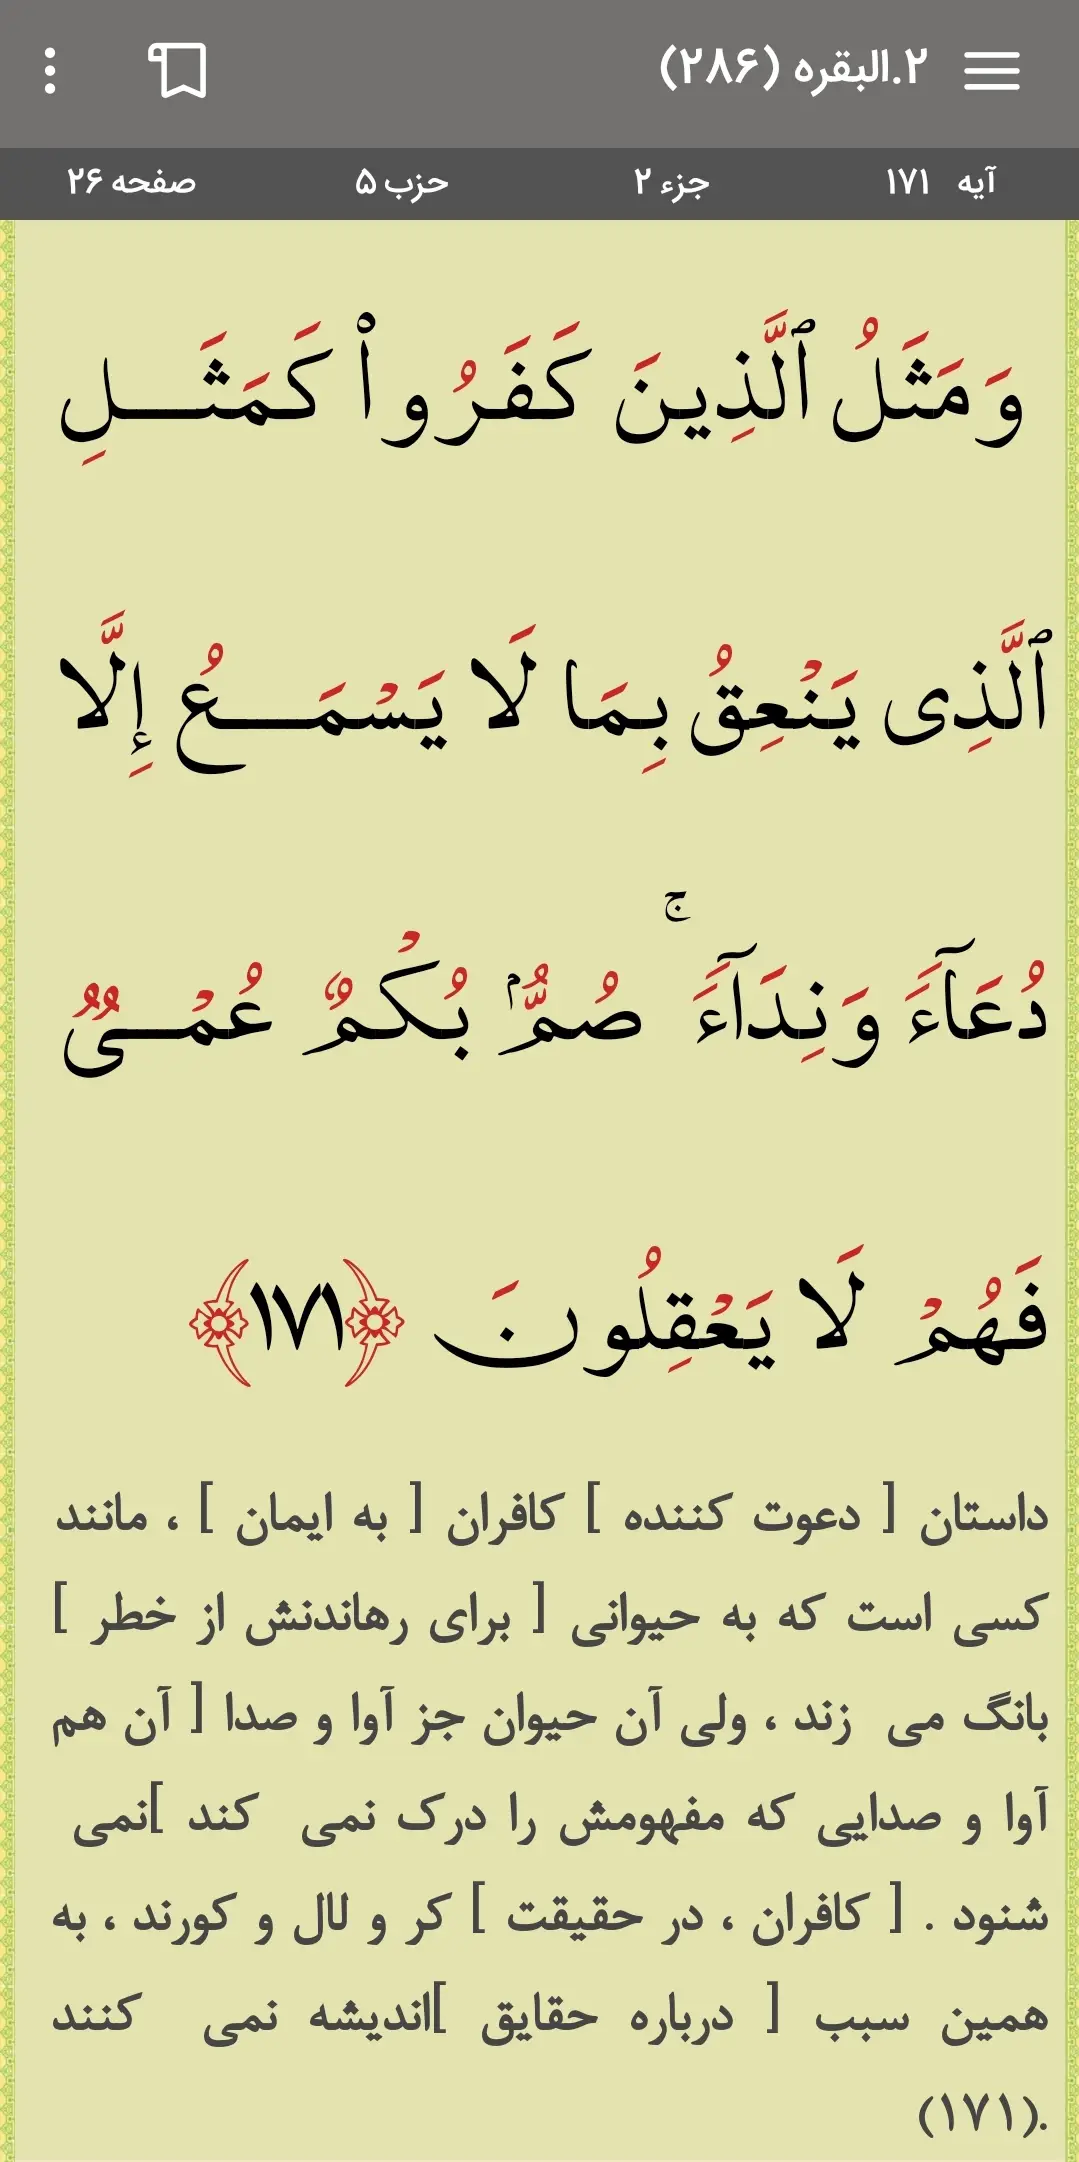 ۲.البقره (۲۸۶)
آیه ۱۷۱ جزء ۲ حزب ۵ صفحه ۲۶
وَمَثَلُ ٱلَّذِينَ كَفَرُواْ كَمَثَـــلِ
ٱلَّذِى يَنْعِقُ بِمَا لَا يَسْمَـــعُ إِلَّا
دُعَآءً وَنِدَآءً ۚ صُمُّۢ بُكْمٌ عُمْـــىٌ
فَهُمْ لَا يَعْقِلُونَ ﴿۱۷۱﴾
داستان [ دعوت کننده ] کافران [ به ایمان ] ، مانند
کسی است که به حیوانی [ برای رهاندنش از خطر ]
بانگ می زند ، ولی آن حیوان جز آوا و صدا [ آن هم
آوا و صدایی که مفهومش را درک نمی کند ]نمی
شنود . [ کافران ، در حقیقت ] کر و لال و کورند ، به
همین سبب [ درباره حقایق ]اندیشه نمی کنند
.(۱۷۱)